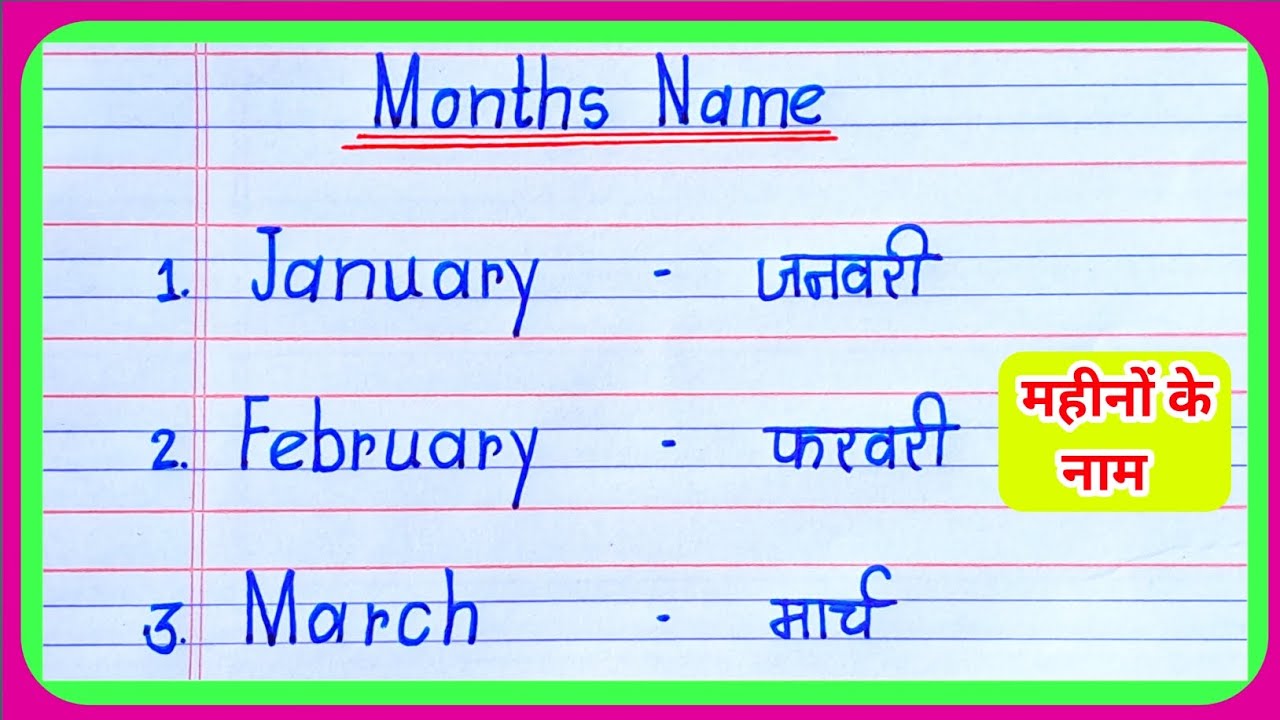 Months Name
1. January - जनवरी
2. February - फरवरी
महीनों के
नाम
3. March - मार्च